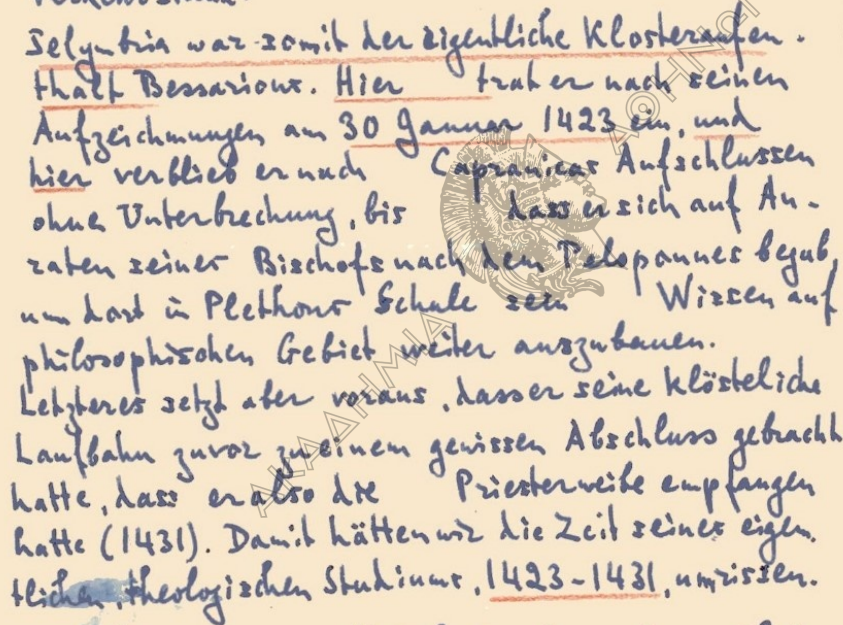 Selymbria war somit der eigentliche Klosteraufen-
thalt Bessarions. Hier trat er nach seinen
Aufzeichnungen am 30 Januar 1423 ein, und
hier verblieb er nach Capranicas Aufschlussen
ohne Unterbrechung, bis dass er sich auf An-
raten seines Bischofs nach dem Peloponnes begab,
um dort in Plethons Schule sein Wissen auf
philosophischen Gebiet weiter auszubauen.
Letzteres setzt aber voraus, dass er seine klösteliche
Laufbahn zuvor zu einem gewissen Abschluss gebracht
hatte, dass er also die Priesterweihe empfangen
hatte (1431). Damit hätten wir die Zeit seines eigen
tlichen, theologischen Studiums, 1423-1431, umrissen.
ΑΚΑΔΗΜΙΑ ΑΘΗΝΩΝ